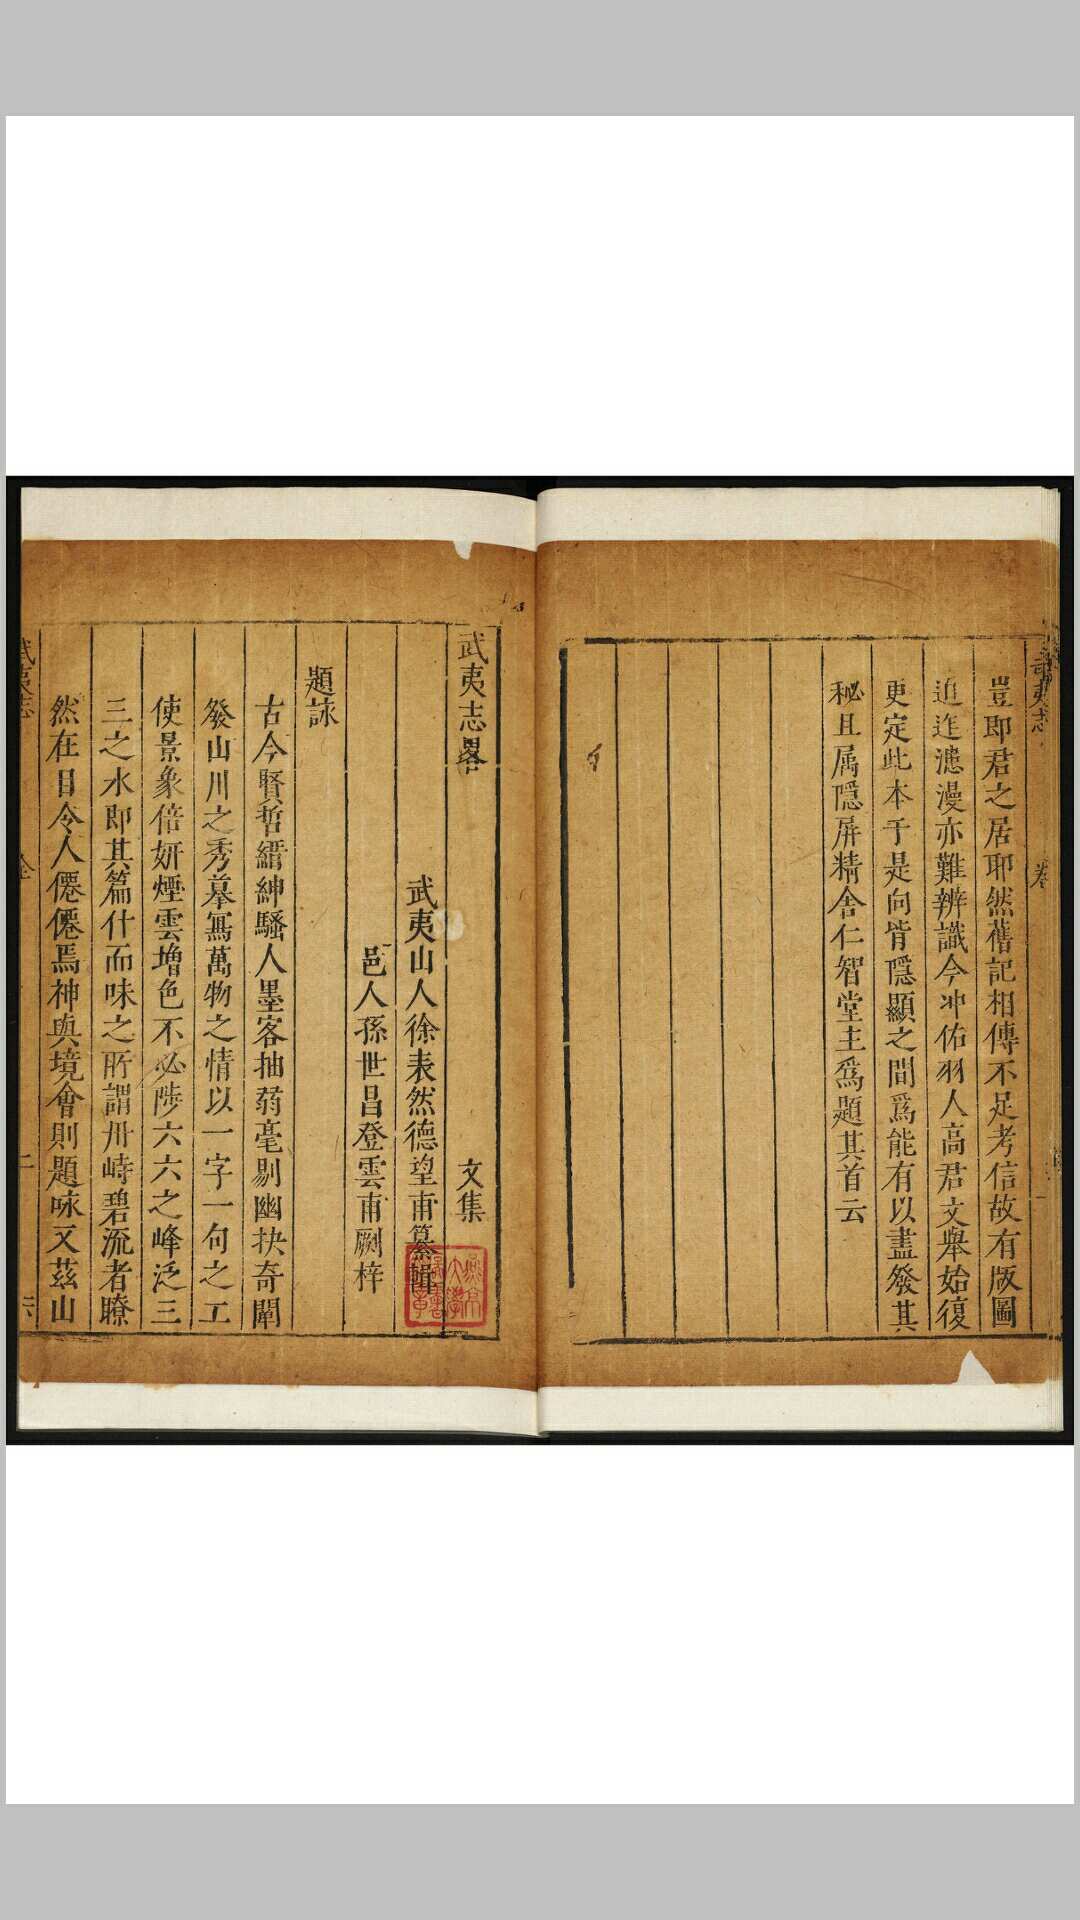 豈即君之居耶然舊記相傳不足考信故有版圖
迫迮漶漫亦難辨識今冲佑羽人高君文舉始復
更定此本于是向背隱顯之間爲能有以盡發其
秘且属隱屏精舍仁智堂主爲題其首云
武夷志畧 文集
武夷山人徐表然德望甫纂輯
邑人孫世昌登雲甫劂梓
題詠
古今賢哲縉紳騷人墨客抽蒭毫剔幽抉奇闡
發山川之秀摹寫萬物之情以一字一句之工
使景象倍妍煙雲增色不必陟六六之峰泛三
三之水即其篇什而味之所謂丹崎碧流者瞭
然在目令人僊僊焉神與境會則題咏又茲山
武夷志